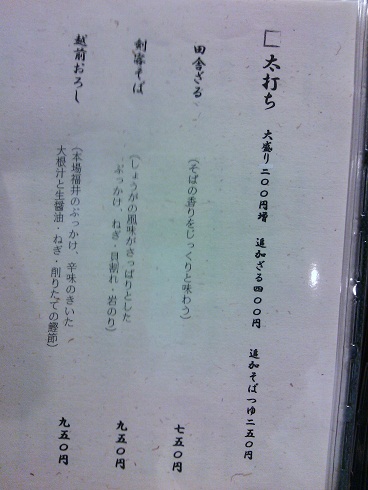 太打ち 大盛り二〇〇円増 追加ざる四〇〇円 追加そばつゆ二五〇円
田舎ざる
(そばの香りをじっくりと味わう) 七五〇円
剣客そば
(しょうがの風味がさっぱりとした
ぶっかけ、ねぎ・貝割れ・岩のり) 九五〇円
越前おろし
(本場福井のぶっかけ、辛味のきいた
大根汁と生醤油・ねぎ・削りたての鰹節) 九五〇円